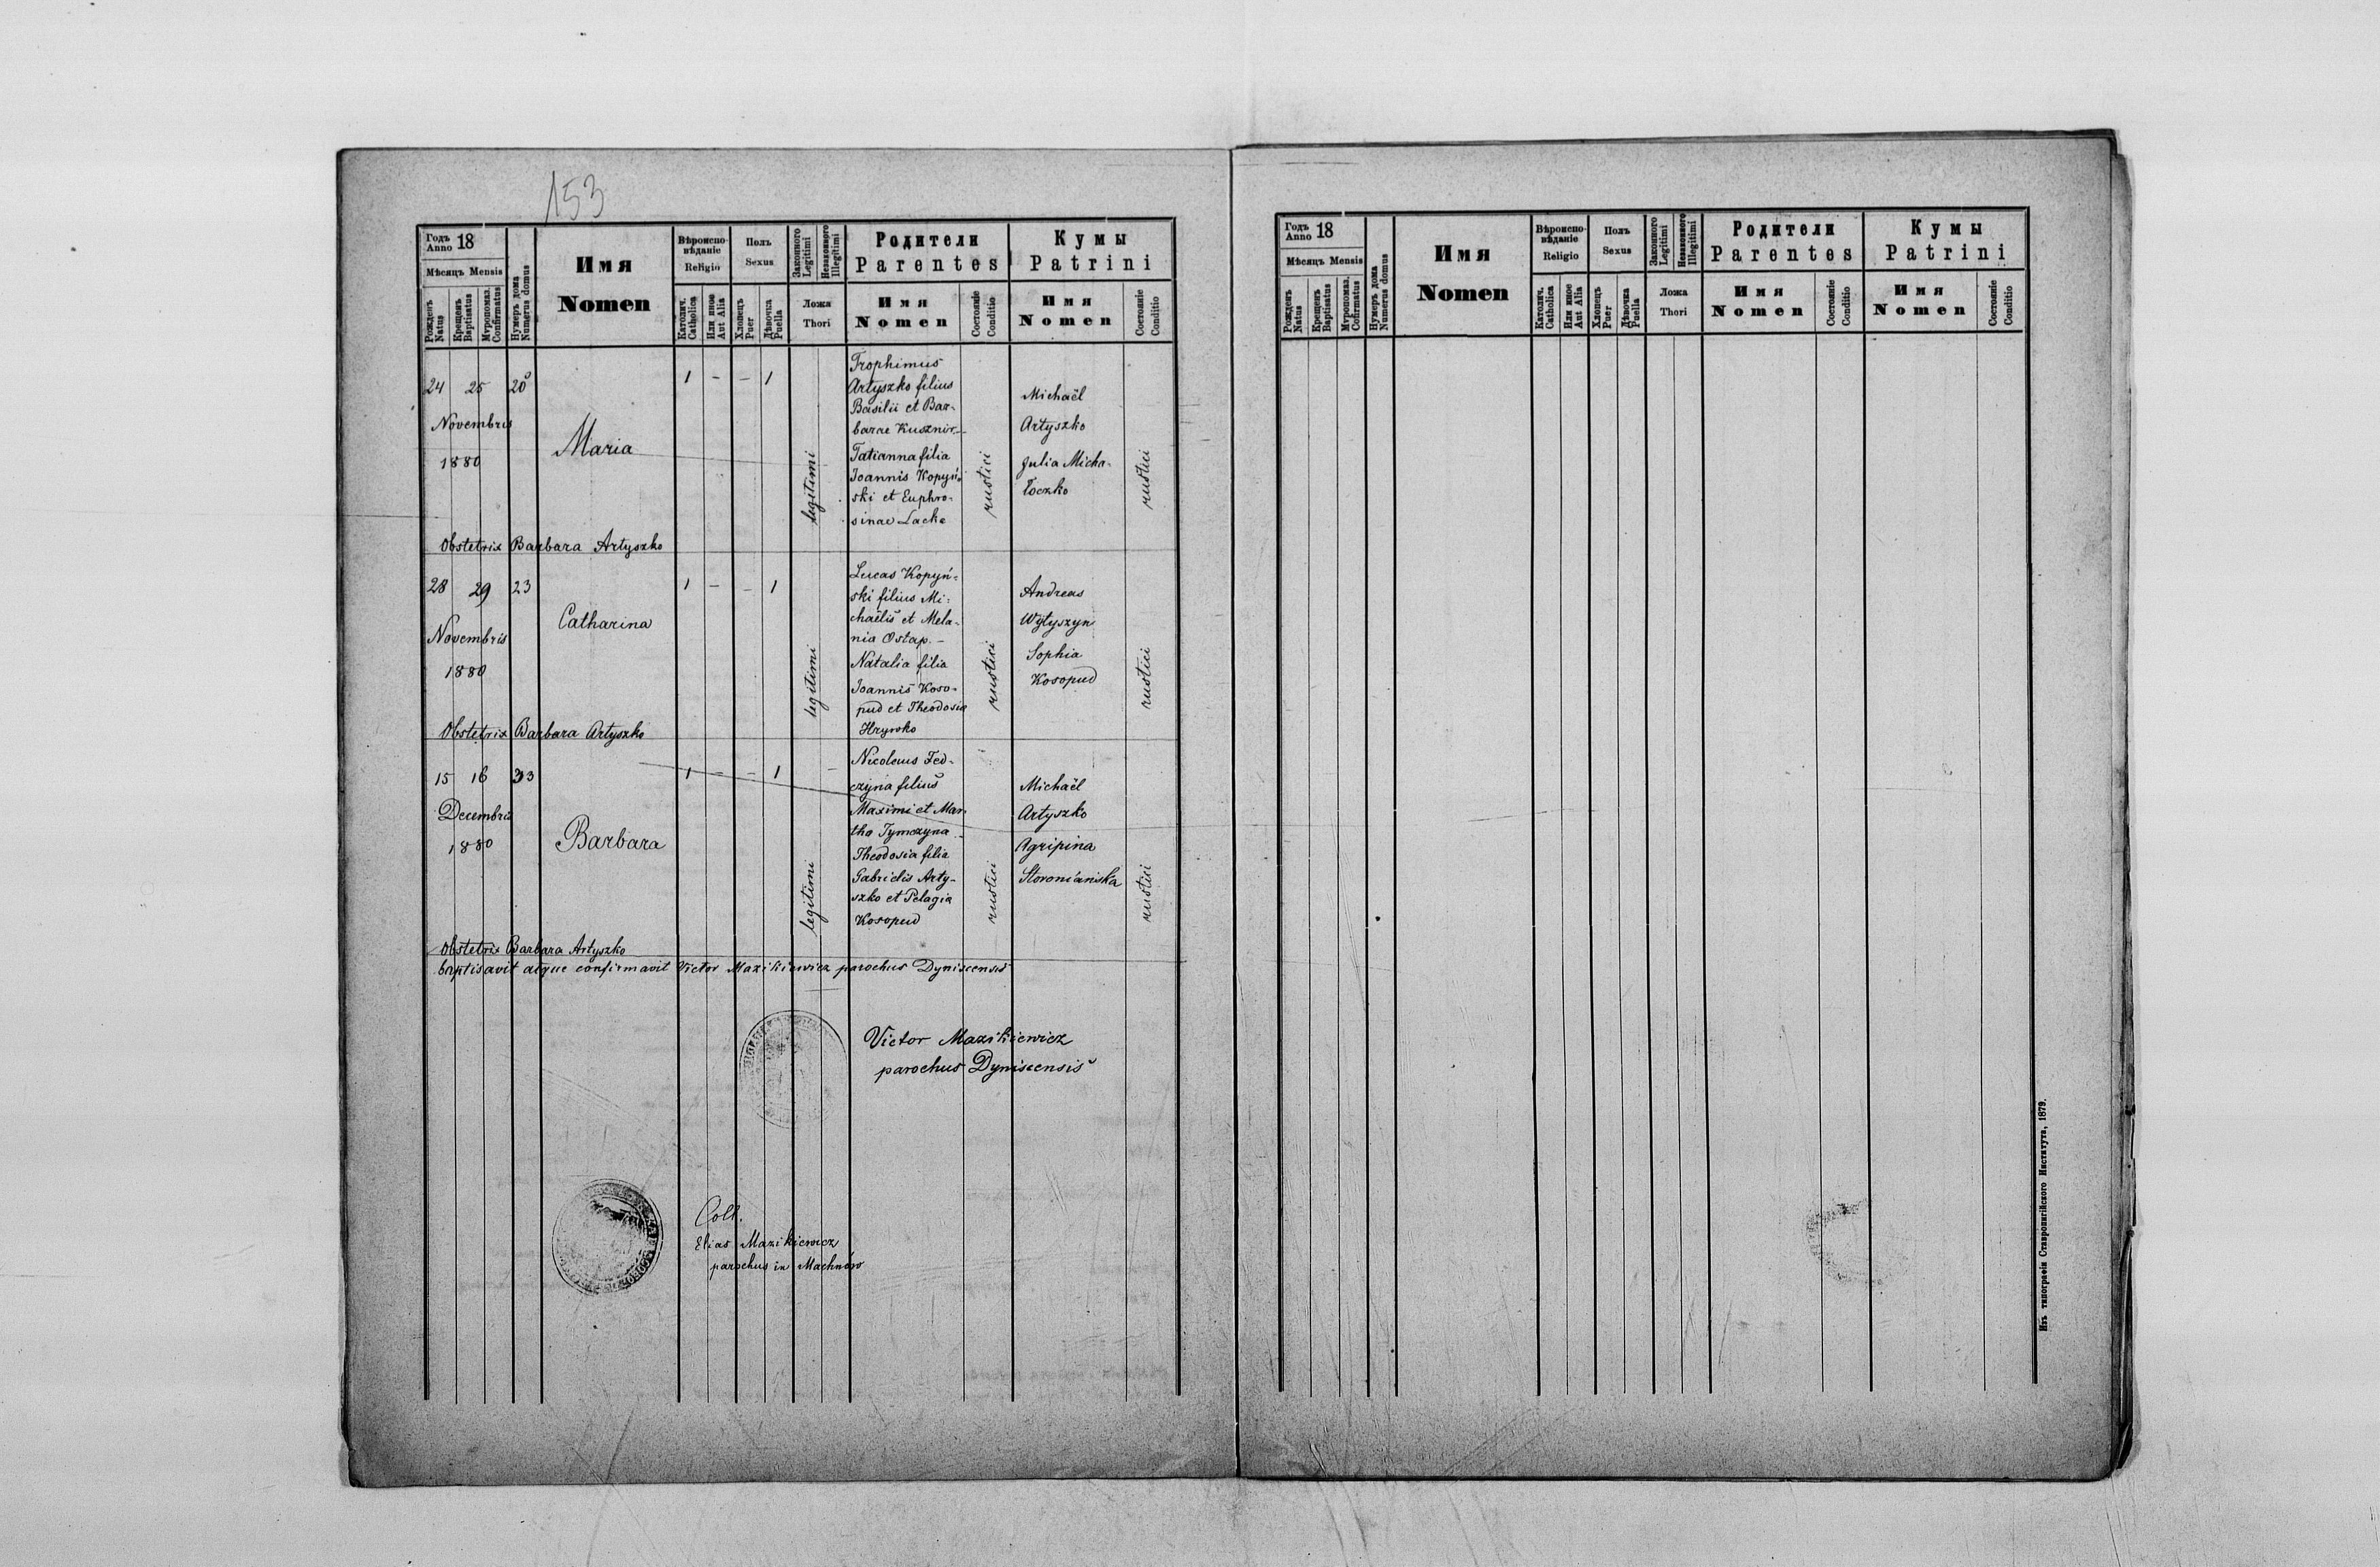 153
Годъ Anno 18
Мѣсяцъ Mensis
Рожденъ Natus
Крещенъ Baptisatus
Мѵропомаз. Confirmatus
Нумеръ дома Numerus domus
Имя
Nomen
Вѣроиспо-
вѣданіе
Religio
Католич. Catholica
Или иное Aut Alia
Полъ
Sexus
Хлопецъ Puer
Дѣвочка Puella
Законного Legitimi
Незаконного Illegitimi
Ложа
Thori
Родители
Parentes
Имя
Nomen
Состояніе Conditio
Кумы
Patrini
Имя
Nomen
Состояніе Conditio
24 25 20
Novembris
1880
Maria
1 - - 1
legitimi
Trophimus
Artyszko filius
Basilii et Bar-
barae Kusznir.-
Tatianna filia
Joannis Kopyń-
ski et Euphro-
sinae Lacke
rustici
Michaël
Artyszko
Julia Micha-
łoczko
rustici
Obstetrix Barbara Artyszko
28 29 23
Novembris
1880
Catharina
1 - - 1
legitimi
Lucas Kopyń-
ski filius Mi-
chaëlis et Mela-
nia Ostap.-
Natalia filia
Joannis Koso-
pud et Theodosia
Hrywko
rustici
Andreas
Wytyszyn
Sophia
Kosopud
rustici
Obstetrix Barbara Artyszko
15 16
Decembris
1880
Barbara
1 - - 1
legitimi
Nicolaus Fed-
czyna filius
Maximi et Mar-
tha Tymczyna -
Theodosia filia
Gabrielis Arty-
szko et Pelagia
Kosopud
rustici
Michaël
Artyszko
Agripina
Storoniańska
rustici
Obstetrix Barbara Artyszko
baptisavit atque confirmavit Victor Mazikiewicz parochus Dyniscensis
Victor Mazikiewicz
parochus Dyniscensis
Coll.
Elias Mazikiewicz
parochus in Machnów
Годъ Anno 18
Мѣсяцъ Mensis
Рожденъ Natus
Крещенъ Baptisatus
Мѵропомаз. Cofirmatus
Нумеръ дома Numerus domus
Имя
Nomen
Вѣроиспо-
вѣданіе
Religio
Католич. Catholica
Или иное Aut Alia
Полъ
Sexus
Хлопецъ Puer
Дѣвочка Puella
Законного Legitimi
Незаконного Illegitimi
Ложа
Thori
Родители
Parentes
Имя
Nomen
Состояніе Conditio
Кумы
Patrini
Имя
Nomen
Состояніе Conditio
Изъ типографіи Ставропигійского Института, 1879.